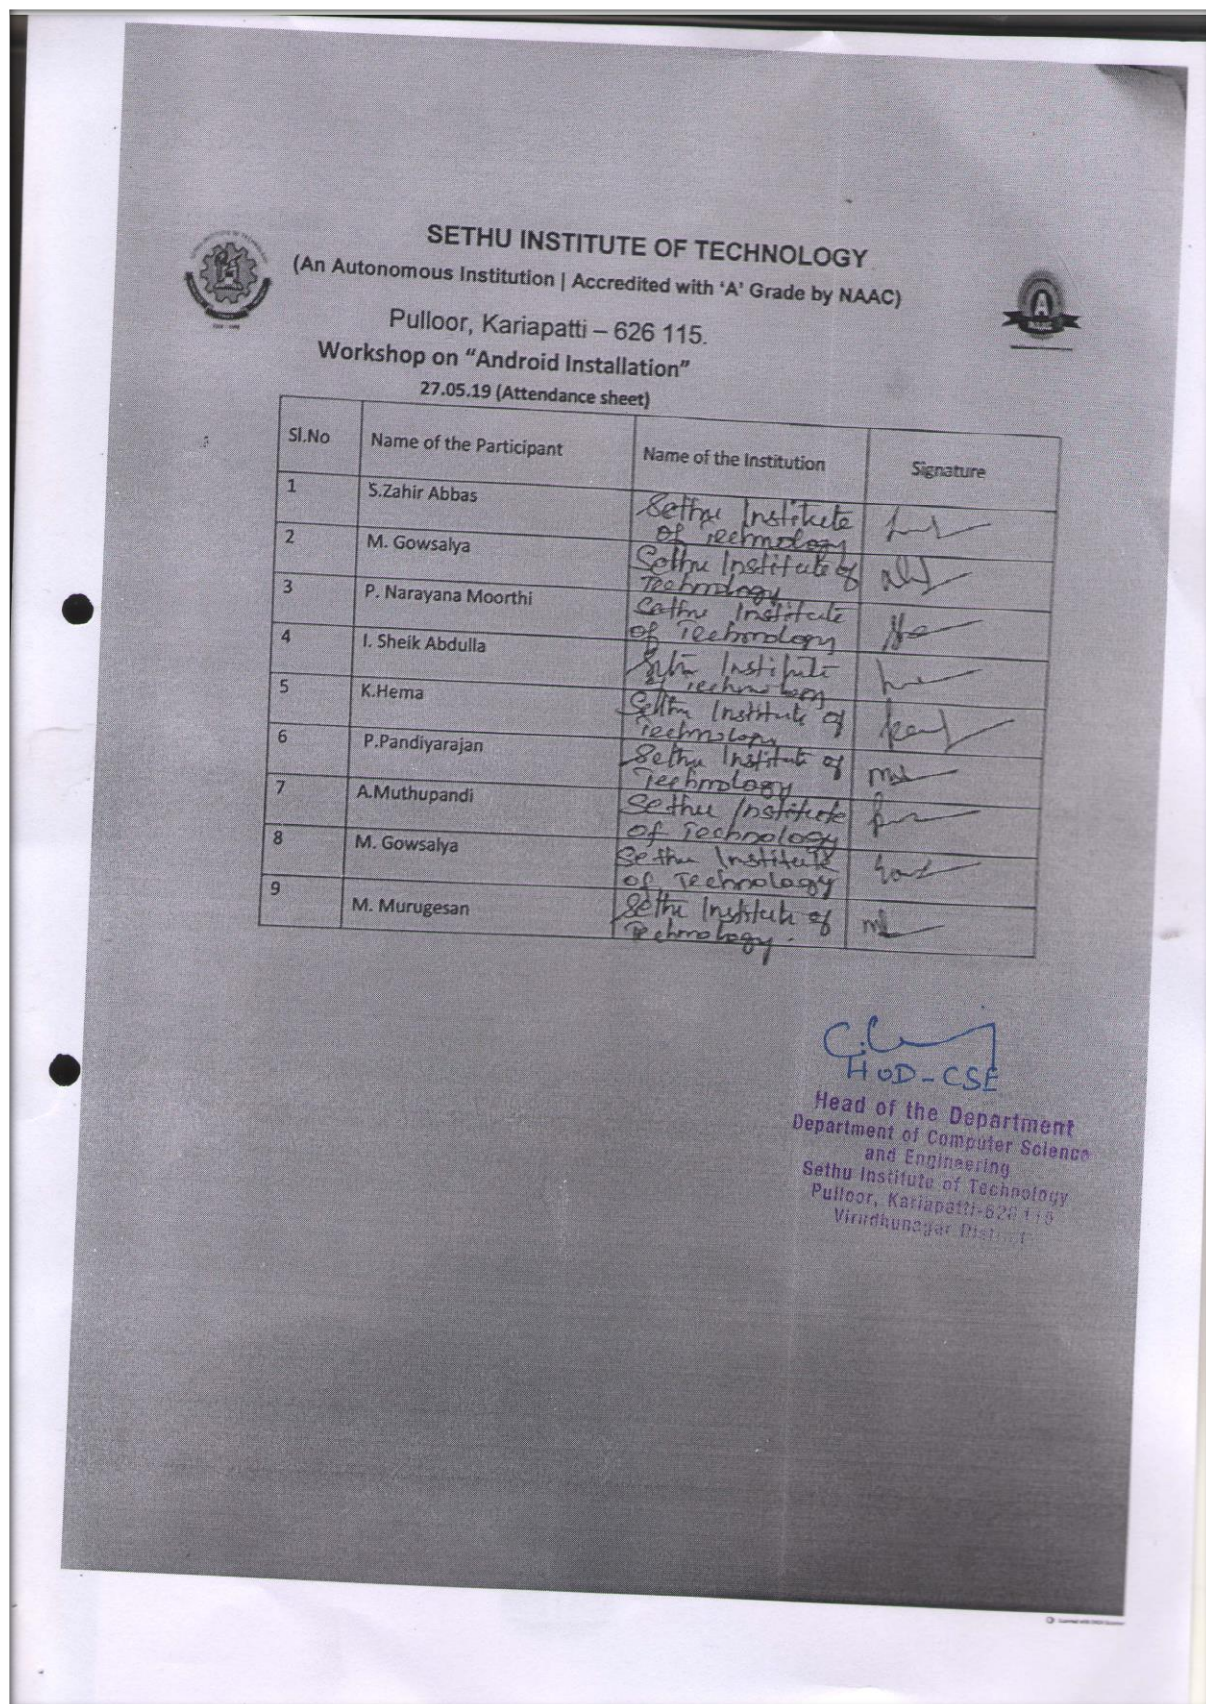 SETHU INSTITUTE OF TECHNOLOGY
(An Autonomous Institution | Accredited with ‘A’ Grade by NAAC)
Pulloor, Kariapatti – 626 115.
Workshop on “Android Installation”
27.05.19 (Attendance sheet)
Sl.No Name of the Participant Name of the Institution Signature
1 S.Zahir Abbas Sethu Institute
of Technology
2 M. Gowsalya Sethu Institute of
Technology
3 P. Narayana Moorthi Sethu Institute
of Technology
4 I. Sheik Abdulla Sethu Institute
of Technology
5 K.Hema Sethu Institute of
Technology
6 P.Pandiyarajan Sethu Institute of
Technology
7 A.Muthupandi Sethu Institute
of Technology
8 M. Gowsalya Sethu Institute
of Technology
9 M. Murugesan Sethu Institute of
Technology.
HOD-CSE
Head of the Department
Department of Computer Science
and Engineering
Sethu Institute of Technology
Pulloor, Kariapatti-626 115
Virudhunagar District
A